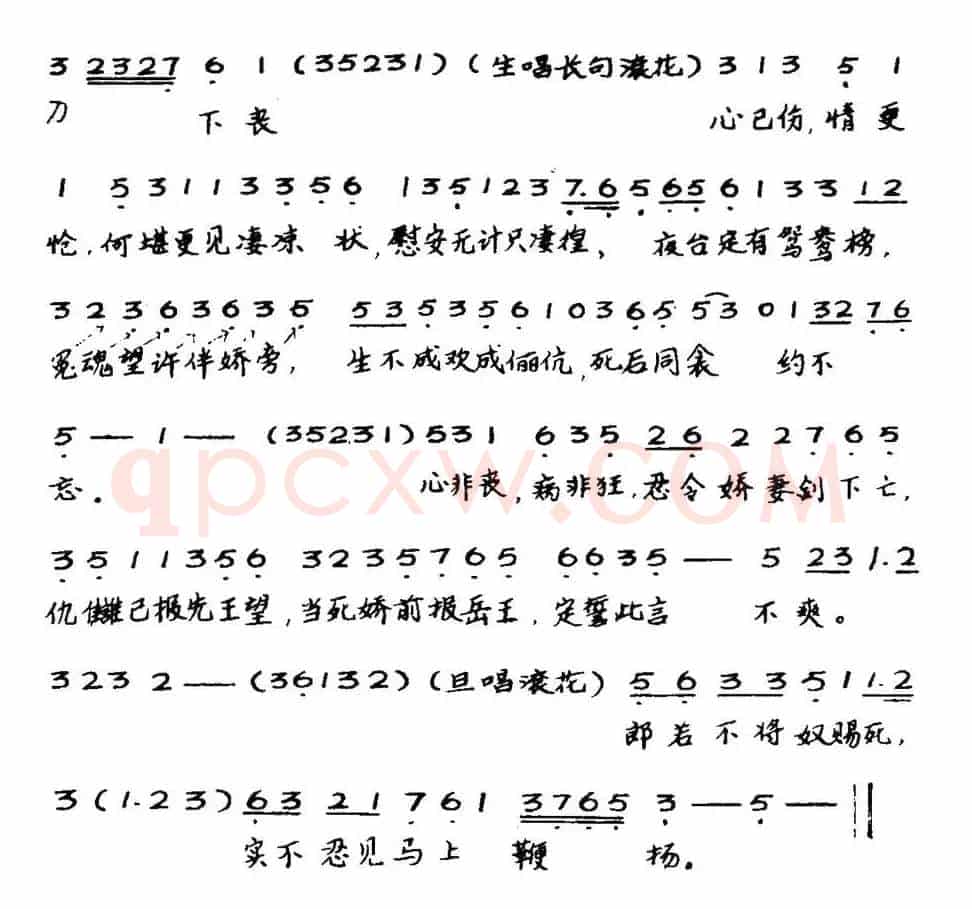 3 2327 6 1 (35231) (生唱长句滚花) 3 1 3 5 1
刀 下丧 心已伤,情更
1 5 3 1 1 3 3 5 6 1 3 5 1 2 3 7.6 5 65 6 1 3 3 12
怆,何堪更见凄凉状,慰安无计只凄徨、夜台定有鸳鸯榜,
3 2 3 6 3 6 3 5 53 5 3 5 6 1 0 3 6 5 53 0 1 32 76
冤魂望许伴娇旁,生不成欢成俪伉,死后同衾约不
5 — 1 — (35231) 5 3 1 6 3 5 26 2 2 7 6 5
忘。 心非丧,病非狂,忍令娇妻剑下亡,
qpcxw.COM
3 5 1 1 3 5 6 3 2 3 5 7 6 5 6 6 3 5 — 5 23 1.2
仇雠已报先王望,当死娇前报岳王,定誓此言不爽。
3 2 3 2 — (36132) (旦唱滚花) 56 33 5 1 1.2
郎若不将奴赐死,
3 (1.2 3) 63 21 7 6 1 3765 3 — 5 —
实不忍见马上鞭扬。